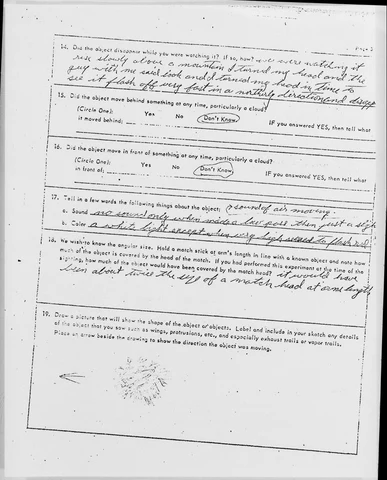 Page 3
14. Did the object disappear while you were watching it? If so, how? we were watching it
rise slowly above a mountain I turned my head and the
guy with me said look and I turned my head in time to
see it flash off very fast in a northerly direction and disapp
15. Did the object move behind something at any time, particularly a cloud?
(Circle One): Yes No Don't Know. IF you answered YES, then tell what
it moved behind:
16. Did the object move in front of something at any time, particularly a cloud?
(Circle One): Yes No Don't Know. IF you answered YES, then tell what
in front of:
17. Tell in a few words the following things about the object: sound of air moving.
a. Sound no sound only when made a low pass then just a sligh
b. Color a white light except when very high seemed to flash red
18. We wish to know the angular size. Hold a match stick at arm's length in line with a known object and note how
much of the object is covered by the head of the match. If you had performed this experiment at the time of the
sighting, how much of the object would have been covered by the match head? it would have
been about twice the size of a match head at arms length
19. Draw a picture that will show the shape of the object or objects. Label and include in your sketch any details
of the object that you saw such as wings, protrusions, etc., and especially exhaust trails or vapor trails.
Place an arrow beside the drawing to show the direction the object was moving.